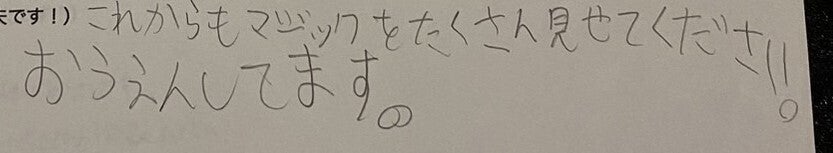 夫です！）これからもマジックをたくさん見せてください!
おうえんしてます。